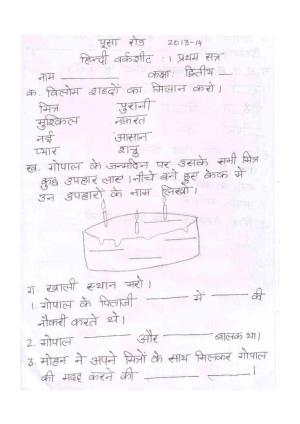 पूसा रोड 2013-14
हिन्दी वर्कशीट : 1 प्रथम सत्र
नाम _________ कक्षाः द्वितीय _
क. विलोम शब्दों का मिलान करो।
मित्र पुरानी
मुश्किल नफ़रत
नई आसान
प्यार शत्रु
ख. गोपाल के जन्मदिन पर उसके सभी मित्र
कुछ उपहार लाए। नीचे बने इस केक में
उन उपहारों के नाम लिखो।
ग. खाली स्थान भरो।
1. गोपाल के पिताजी ________ में ______ की
नौकरी करते थे।
2. गोपाल ________ और ________ बालक था।
3. मोहन ने अपने मित्रों के साथ मिलकर गोपाल
की मदद करने की ________ ________।